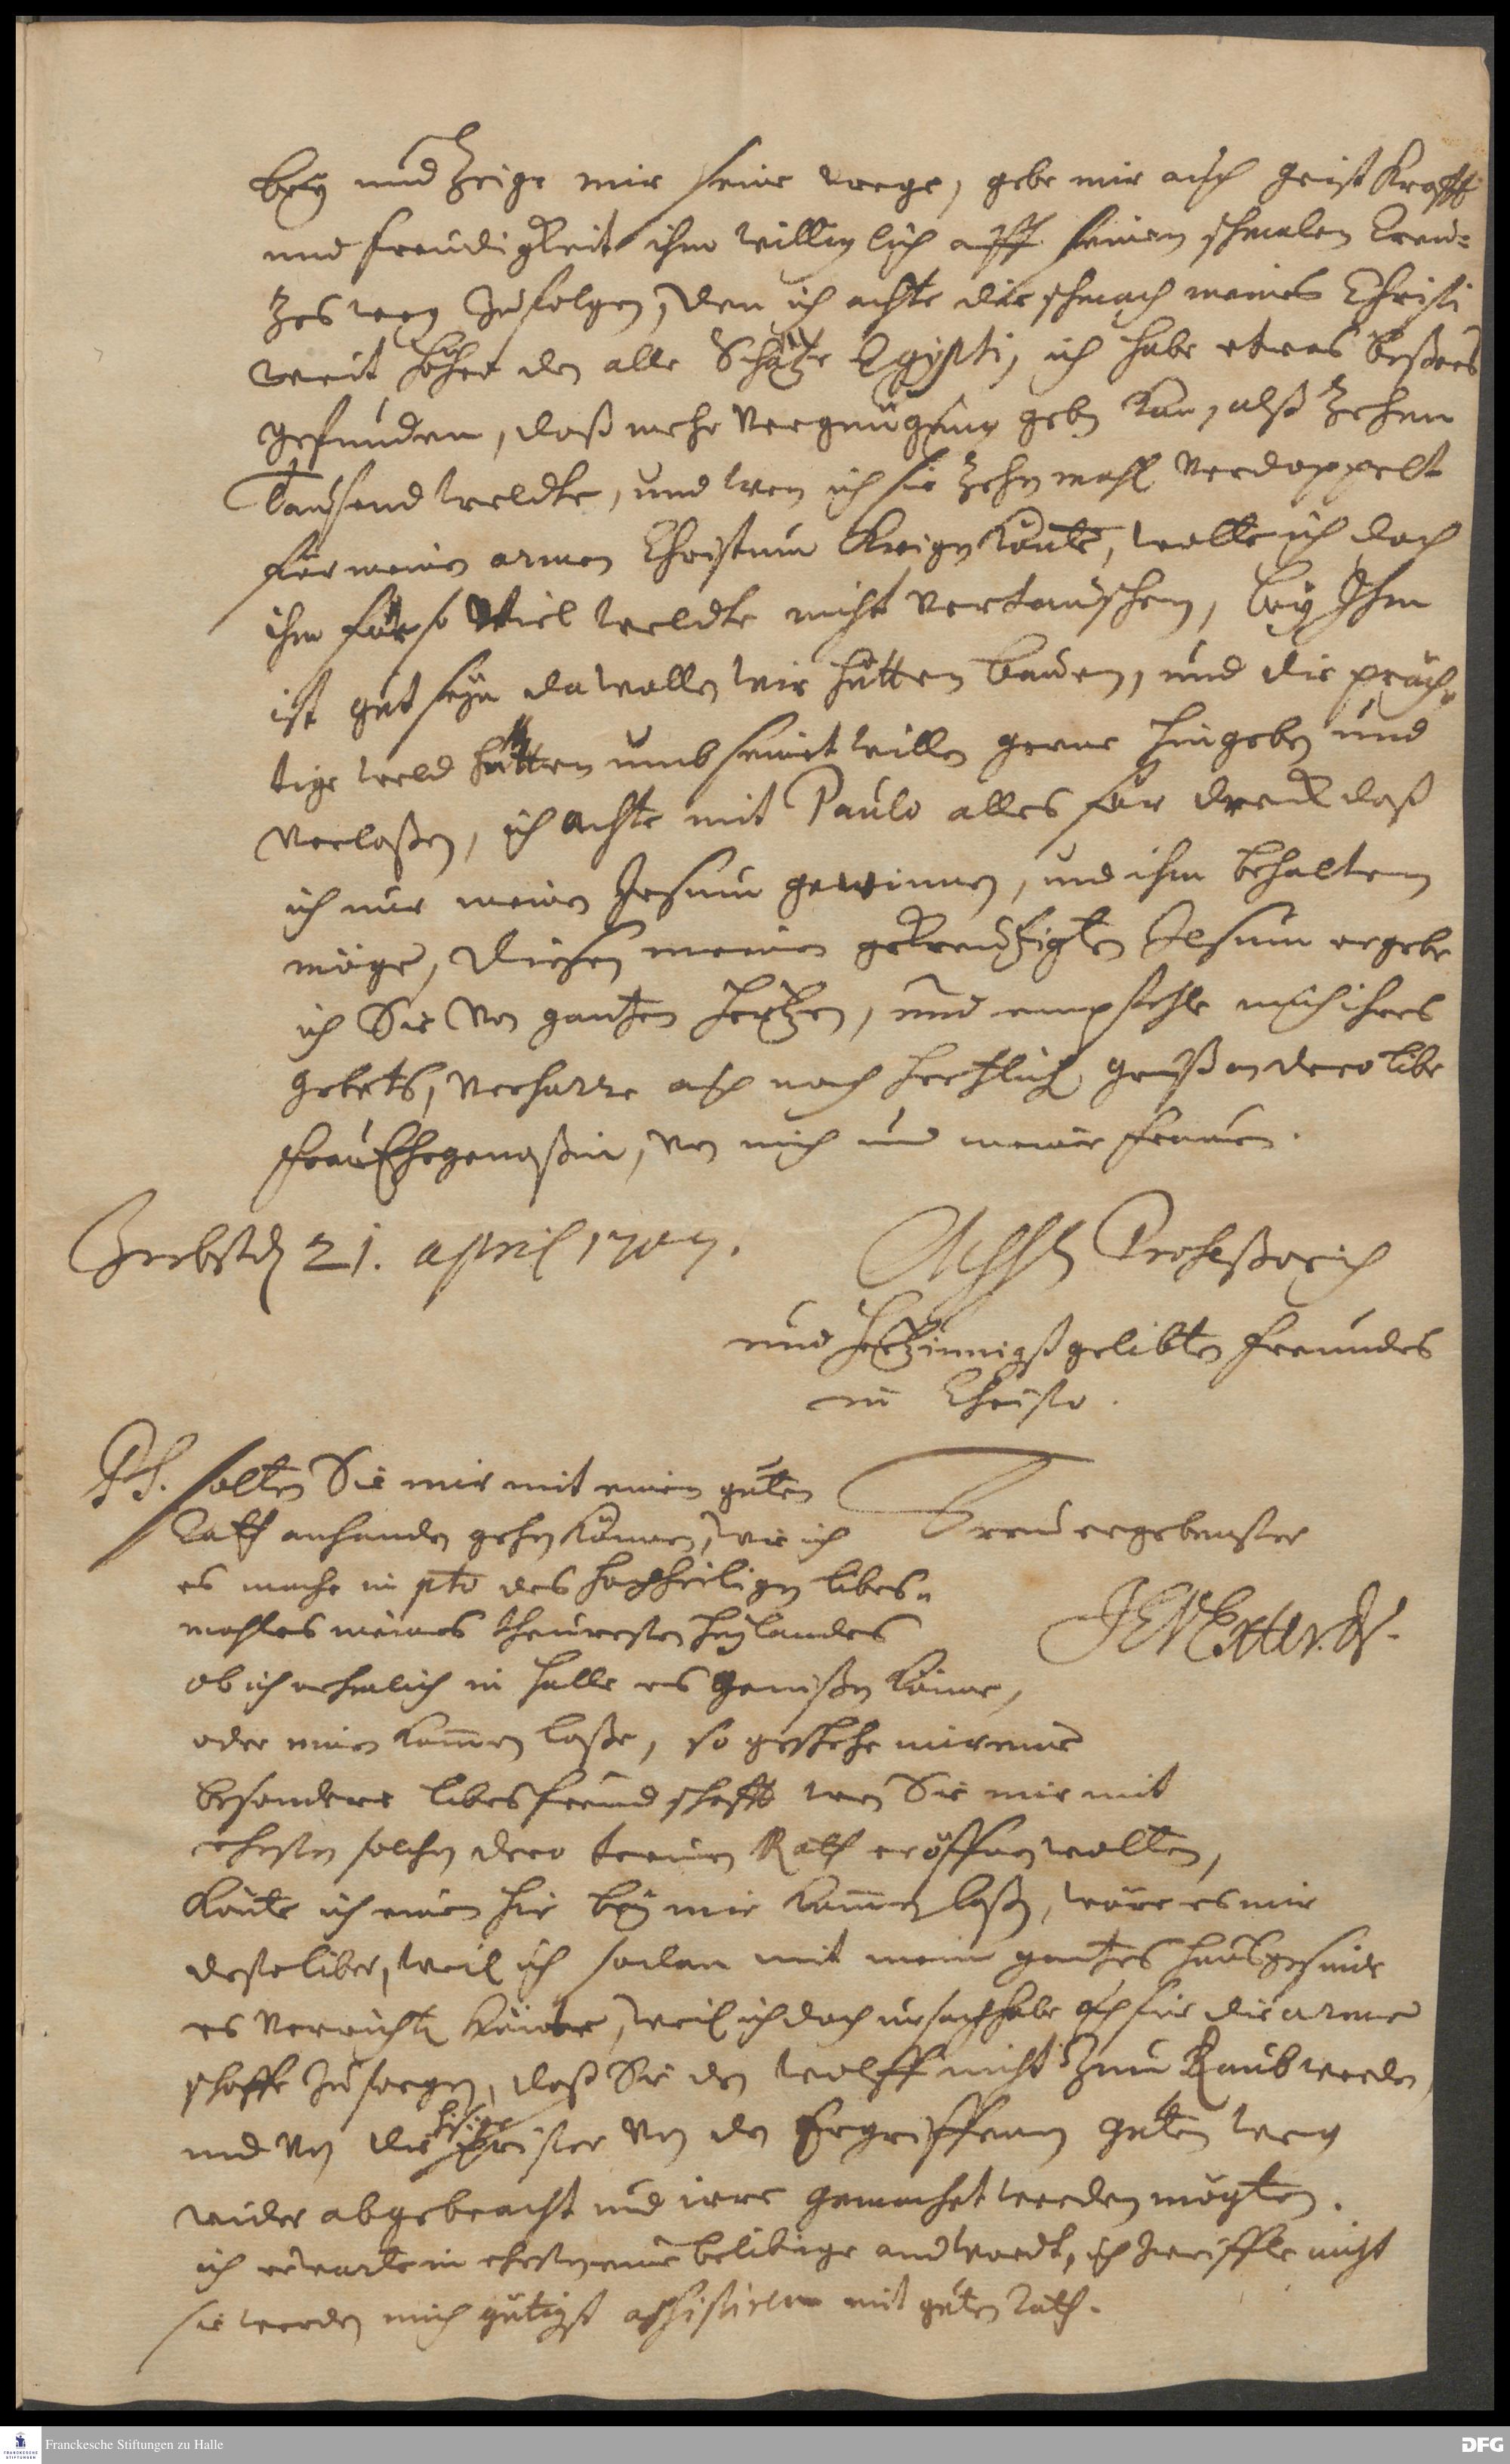 beÿ und Zeige mir seine wege, gebe mir auch geist Krafft
und freudigkeit ihm williglich auff seinen schmalen Creu-
tzes weg zu folgen, den ich achte die schmach meines Christi
weit höher den alle Schätze Egipti, ich habe etwas beßers
gefunden, daß mehr Vergnügung geben kan, alß Zehen
Tausend weldte, und wen ich sie Zehn mahl verdoppelt
für meinen armen Christum kriegen könte, wolte ich doch
ihm für so viel weldte nicht vertauschen, beÿ Ihm
ist gut seÿn da wollen wir hütten bauen, und die präch-
tige weld hütten umb seinet willen gerne hingeben und
verlaßen, ich achte mit Paulo alles für dreck daß
ich nur meinen Jesum gewinnen, und ihm behalten
möge, diesen meinen gekreutzigten Jesum ergebe
ich Sie von gantzen hertzen, und empfehle mich ihres
gebets, verharre auch nach hertzlich gruß an dero libe
frau Ehegenoßin, von mich und meine frauen.
Zerbst den 21. april 1707.
Meßh Profeßorich
und hertzinnigst gelibten freundes
in Christo.
PS. solten Sie mir mit einen guten
Rath anhanden gehen können, wie ich
es mache in pto des hochheiligen libes-
mahles meines theuresten heÿlandes
ob ich nehmlich in halle es genißen könne,
oder einen kommen laße, so geschehe mir eine
besondere libes freundschafft wen Sie mir mit
ehesten solchen dero treuen Rath eröffnen wolten,
Treu ergebenster
JEVExter. D.
könte ich einen hir beÿ mir kommen laßen, wäre es mir
desto liber, weil ich sodan mit mein gantzes haußgesinde
es verrichten könte, weil ich doch ursach habe auch für die arme
schaffe zu sorgen, daß Sie den wolff nicht zum Raub werden,
und von die hisige prister von den Ergriffenen guten weg
wider abgebracht und irre gemachet werden mögten.
ich erwarte in ehesten eine belibige andwordt, ich zweiffle nicht
sie werden mich gütigst assistiren mit guten Rath.